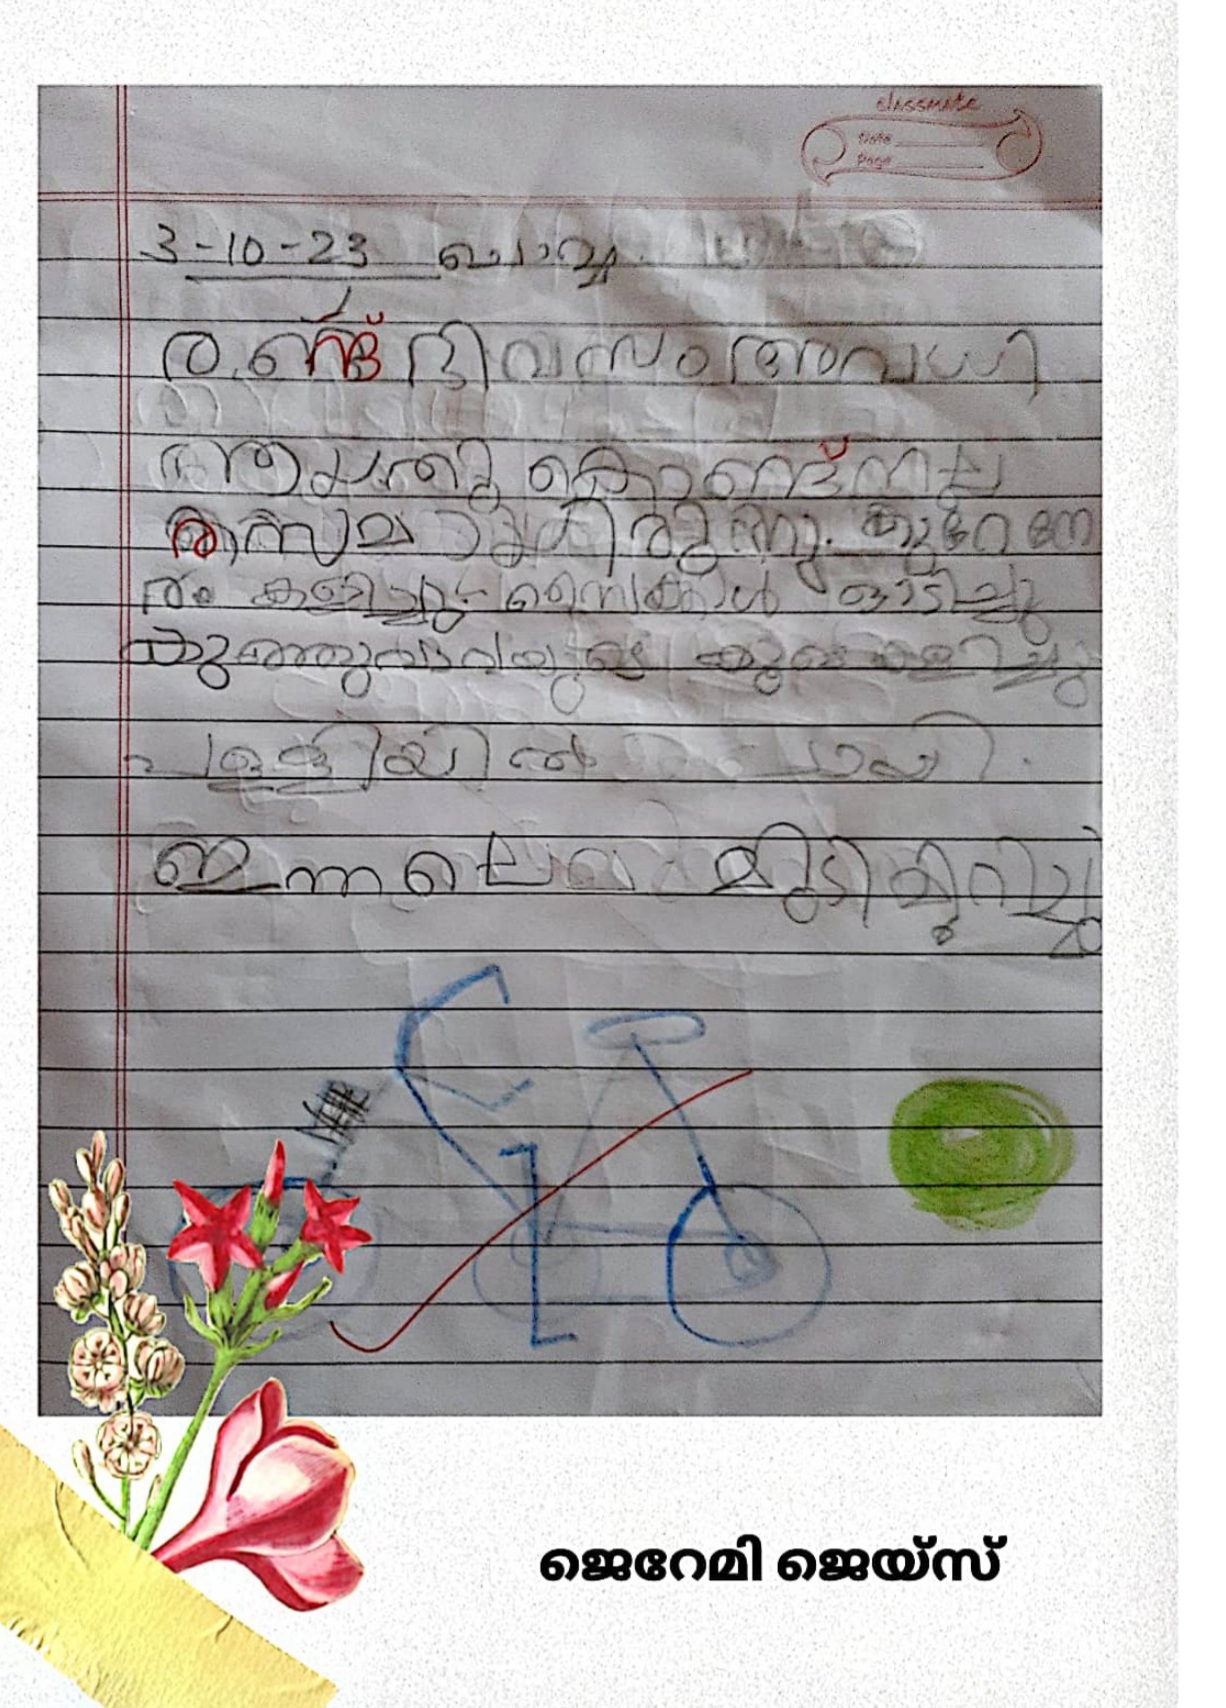 classmate
Date
Page
3-10-23 ചൊവ്വ
രണ്ട് ദിവസം അവധി
ആയത് കൊണ്ട് നല്ല
രസമായിരുന്നു. കുറേ നേ
രം കളിച്ചു സൈക്കിൾ ഓടിച്ചു
കുഞ്ഞുവാവയുടെ കൂടെ കളിച്ചു
പള്ളിയിൽ പോയി.
ഇന്നലെ മുടി മുറിച്ചു
ജെറേമി ജെയ്സ്